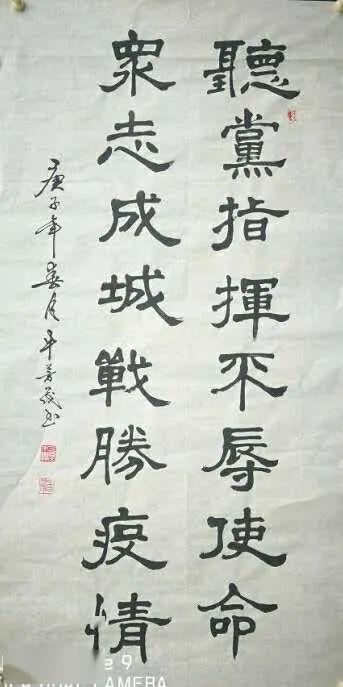 聽黨指揮不辱使命
眾志成城戰勝疫情
庚子年春月
AMERA